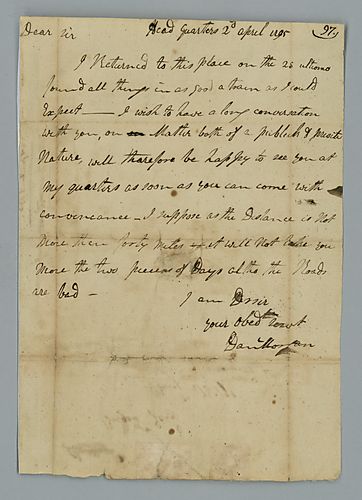 Dear Sir Head Quarters 2d april 1795 97
I Returned to this place on the 25 ultimo
found all things in as good a train as I could
Expect — I wish to have a long conversation
with you, on Matter both of a publick & private
Nature, will therefore be happy to see you at
my quarters as soon as you can come with
conveneance – I suppose as the Distance is Not
More then forty miles it will Not take you
More the two pieces of Days altho, the Roads
are bad –
I am Dr sir
your obedt servt
Danl Morgan